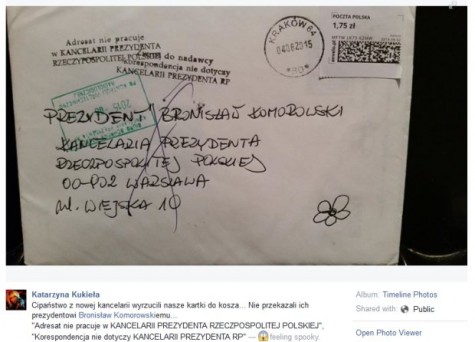 Adresat nie pracuje
w KANCELARII PREZYDENTA
RZECZYPOSPOLITEJ POLSKIEJ
Zwrot do nadawcy
korespondencja nie dotyczy
KANCELARII PREZYDENTA RP
KRAKÓW 64
POCZTA POLSKA
1,75 zł
PREZYDENT BRONISŁAW KOMOROWSKI
KANCELARIA PREZYDENTA
RZECZPOSPOLITEJ POLSKIEJ
00-902 WARSZAWA
ul. WIEJSKA 10
Katarzyna Kukieła
Cipaństwo z nowej kancelarii wyrzucili nasze kartki do kosza... Nie przekazali ich
prezydentowi Bronisław Komorowskiemu...
"Adresat nie pracuje w KANCELARII PREZYDENTA RZECZPOSPOLITEJ POLSKIEJ",
"Korespondencja nie dotyczy KANCELARII PREZYDENTA RP" — feeling spooky.
Album: Timeline Photos
Shared with: Public
Open Photo Viewer